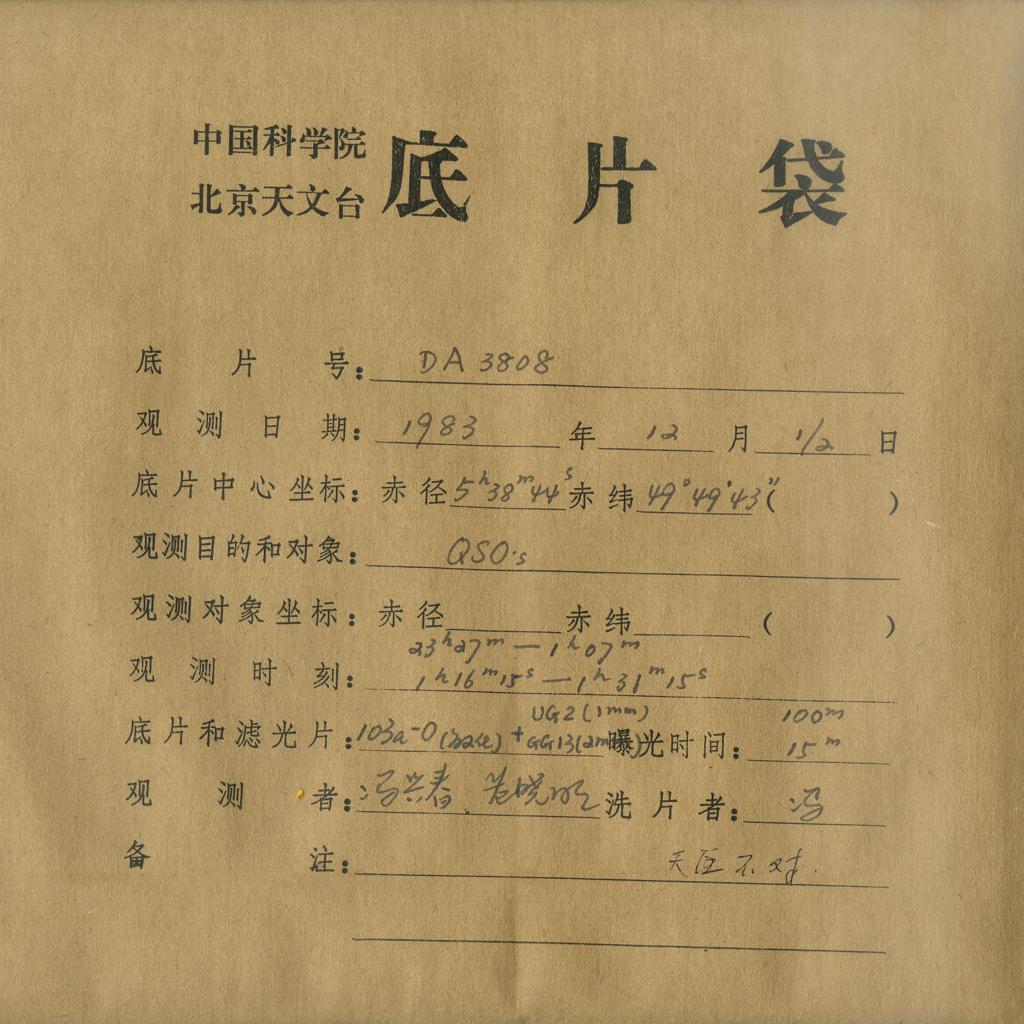 中国科学院
北京天文台
底片袋
底片号: DA 3808
观测日期: 1983 年 12 月 1/2 日
底片中心坐标: 赤径 5ʰ38ᵐ44ˢ 赤纬 49°49′43″ ( )
观测目的和对象: QSO's
观测对象坐标: 赤径 赤纬 ( )
23ʰ27ᵐ — 1ʰ07ᵐ
观测时刻: 1ʰ16ᵐ15ˢ — 1ʰ31ᵐ15ˢ
UG2 (1mm) 100ᵐ
底片和滤光片: 103a-O + GG13 (2mm) 曝光时间: 15ᵐ
观测者: 冯兴春 晓 洗片者: 冯
备注: 天区不对.